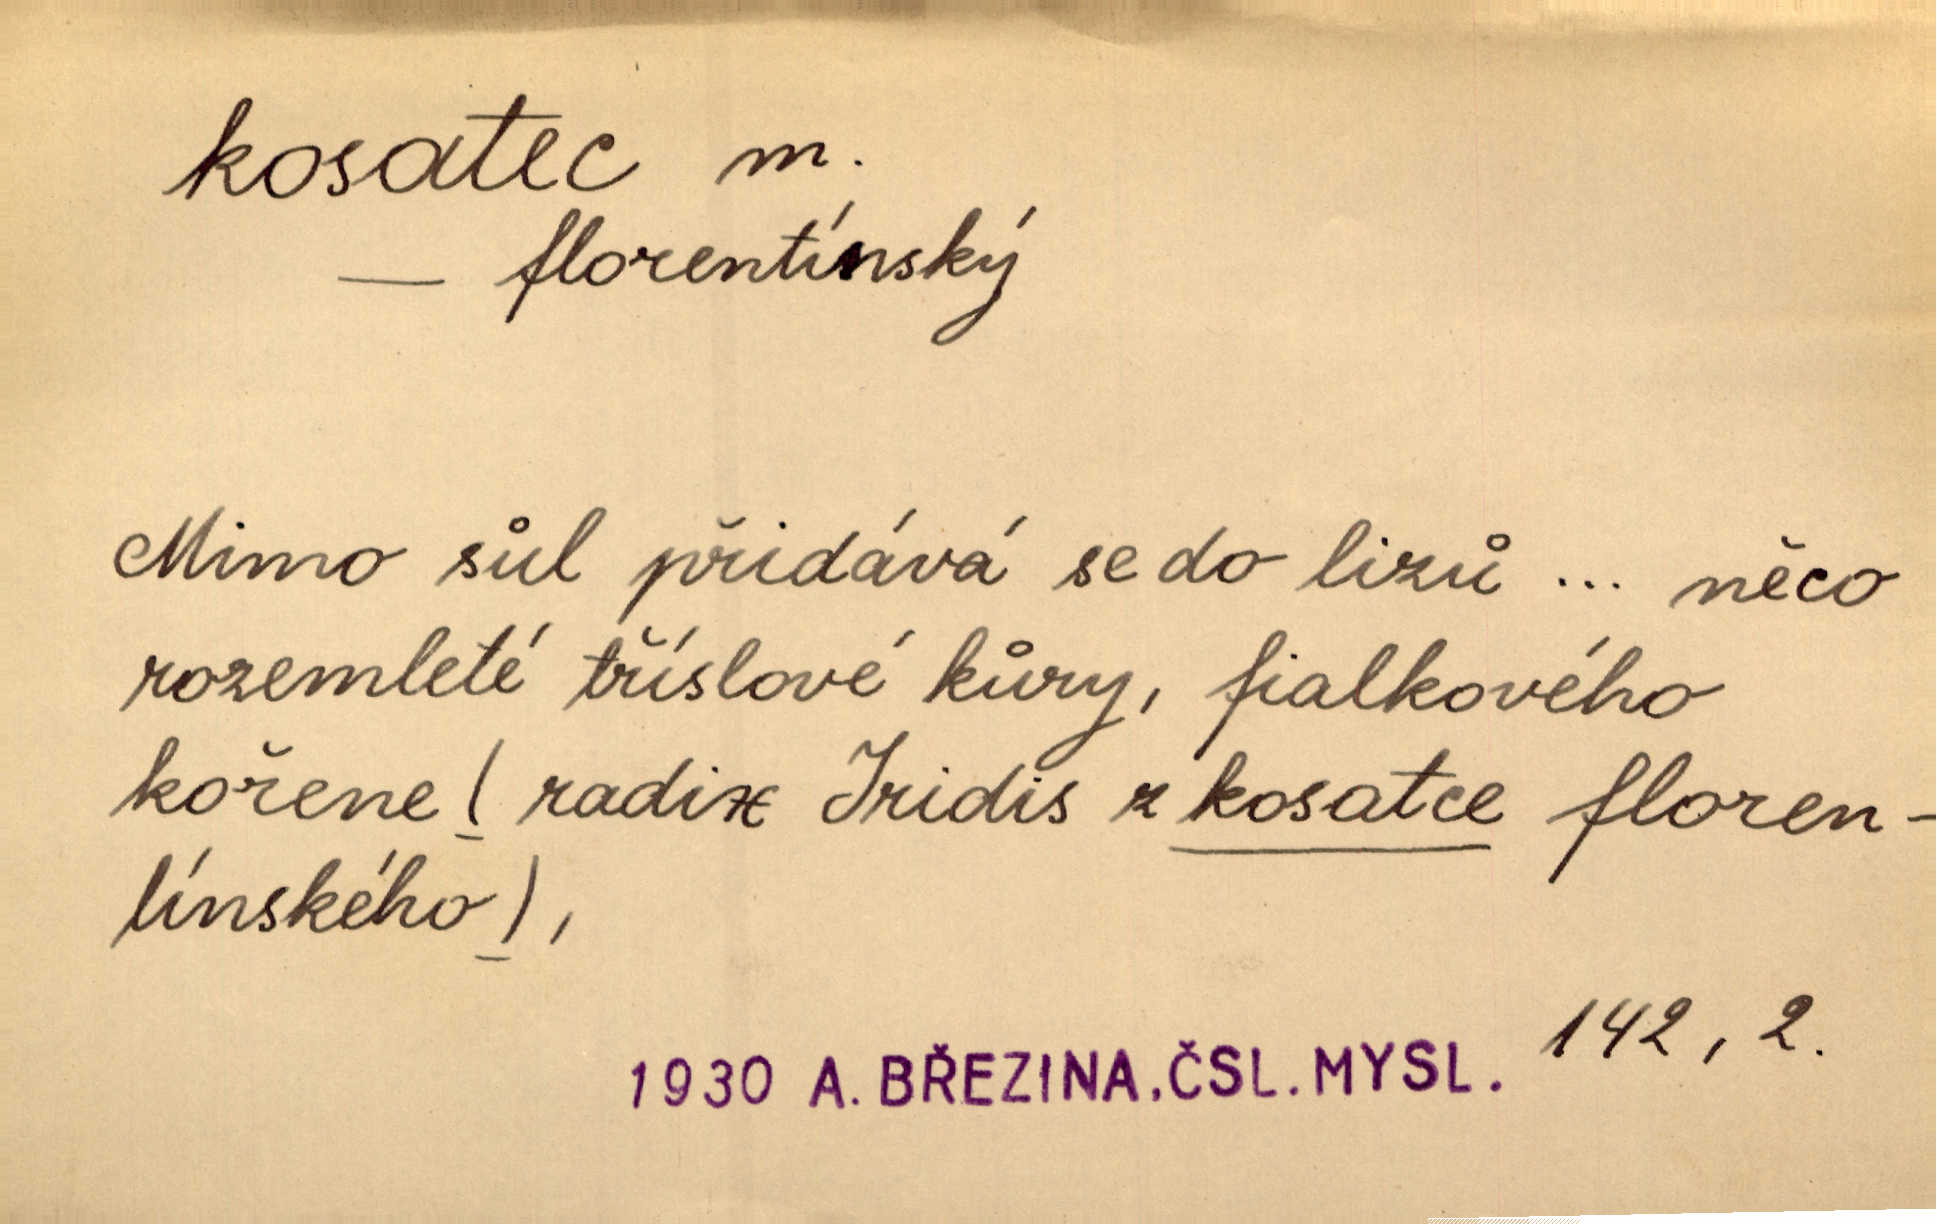 kosatec m.
— florentínský
Mimo sůl přidává se do lizů ... něco
rozemleté tříslové kůry, fialkového
kořene (radix Iridis z kosatce floren-
tínského),
142, 2.
1930 A. BŘEZINA. ČSL. MYSL.